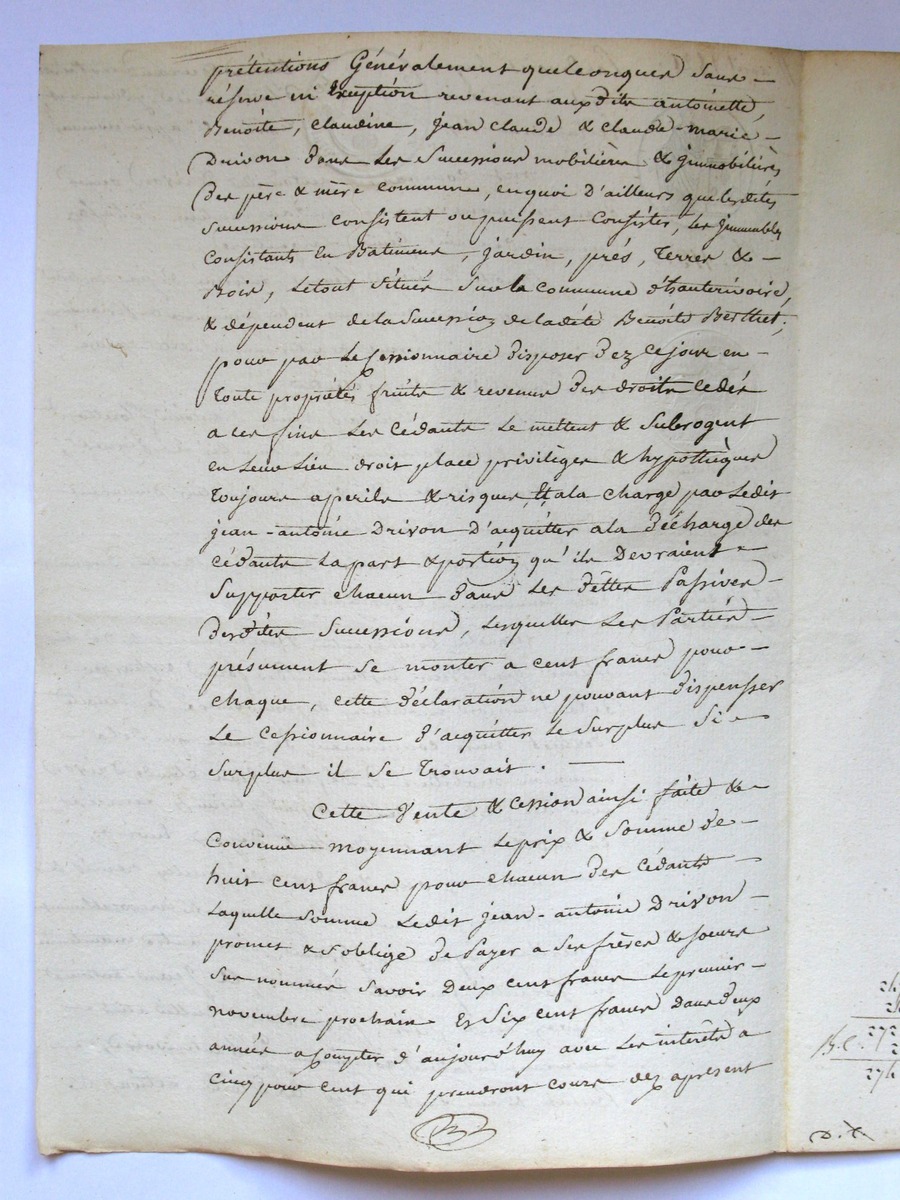 prétentions Généralement quelconques sans -
réserve ni Exception revenant auxdits antoinette,
Benoîte, claudine, jean claude & claude-marie -
Drivon dans Les Successions mobilières & jmmobilières
Des père & mère communs, en quoi d'ailleurs que lesdites
successions consistent ou puissent Consister, Les jmmeubles
Consistants En Batiments, jardin, prés, Terres & -
Bois, Letout Situés Sur la Commune d'hauterivoire,
& dépendent de la Succession de ladite Benoîte Berthet;
pour par Le Cessionnaire disposer dez ce jour en -
Toute propriétés fruits & revenus des droits cedés
a ces fins Les Cédants Le mettent & Subrogent
en Leur Lieu droit place privilèges & hypothèques
Toujours a perils & risques, Et a la charge par Ledit
jean-antoine Drivon D'acquitter a la Décharge des
cédants La part & portion qu'ils Devraient -
Supporter chacun dans Les Dêttes Passives -
Desdites Successions, Lesquelles Les Parties -
présument se monter a cent francs pour -
chaque, cette déclaration ne pouvant dispenser
Le Cessionnaire d'acquitter Le Surplus Si -
Surplus il Se Trouvait. -
Cette Vente & Cession ainsi faite & -
Convenue moyennant Le prix & Somme de -
huit cent francs pour chacun des Cédants -
Laquelle Somme Ledit jean-antoine Drivon -
promet & s'oblige de Payer a Ses frères & soeurs
sus nommés Savoir Deux cent francs Le premier -
novembre prochain Et Six cent francs Dans deux
années a compter d'aujourd'huy avec Les intérêts à
Cinq pour cent qui prendront cours dez apresent
272
D. X.